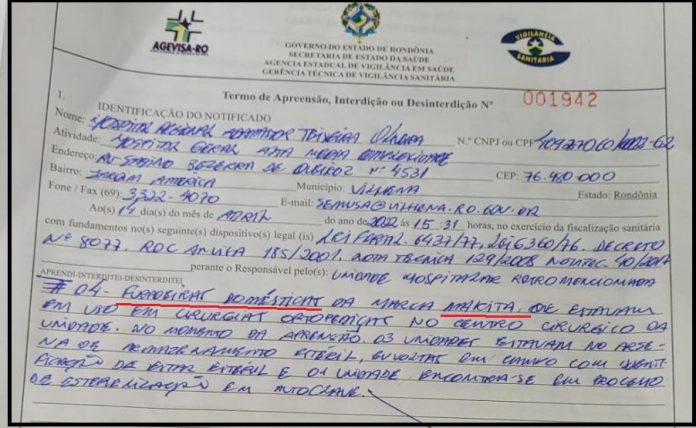 AGEVISA-RO
GOVERNO DO ESTADO DE RONDÔNIA
SECRETARIA DE ESTADO DA SAÚDE
AGENCIA ESTADUAL DE VIGILÂNCIA EM SAÚDE
GERÊNCIA TÉCNICA DE VIGILÂNCIA SANITÁRIA
VIGILÂNCIA
SANITÁRIA
Termo de Apreensão, Interdição ou Desinterdição Nº 001942
1. IDENTIFICAÇÃO DO NOTIFICADO
Nome: HOSPITAL REGIONAL TEIXEIRA OLIVEIRA N.º CNPJ ou CPF
Atividade: HOSPITAL GERAL ALTA MEDIA COMPLEXIDADE
Endereço: BEZERRA DE QUEIROZ Nº 4531 CEP: 76.980.000
Bairro: JARDIM AMÉRICA Município: VILHENA Estado: Rondônia
Fone / Fax (69): 3322-4070 E-mail: SEMUSA@VILHENA.RO.GOV.BR
Ao(s) 14 dia(s) do mês de ABRIL do ano de 2022 às 15:31 horas, no exercício da fiscalização sanitária
com fundamentos no(s) seguinte(s) dispositivo(s) legal (is) LEI FEDERAL 6437/77, LEI 6360/76. DECRETO
Nº 8077. RDC ANVISA 185/2001. NOTA TÉCNICA 129/2008
perante o Responsável pelo(s): UNIDADE HOSPITALAR RETROMENCIONADA
APRENDI-INTERDITEI-DESINTERDITEI
# 04 - FURADEIRAS DOMÉSTICAS DA MARCA MAKITA, QUE ESTAVAM
EM USO EM CIRURGIAS ORTOPEDICAS NO CENTRO CIRURGICO DA
UNIDADE. NO MOMENTO DA APREENÇÃO 03 UNIDADES ESTAVAM NO ARSE-
NAL DE ARMAZENAMENTO ESTERIL, ENVOLTAS EM CAMPO COM IDENTI-
FICAÇÃO DE ESTAR ESTERIL E 01 UNIDADE ENCONTRA-SE EM PROCESSO
DE ESTERILIZAÇÃO EM AUTOCLAVE.